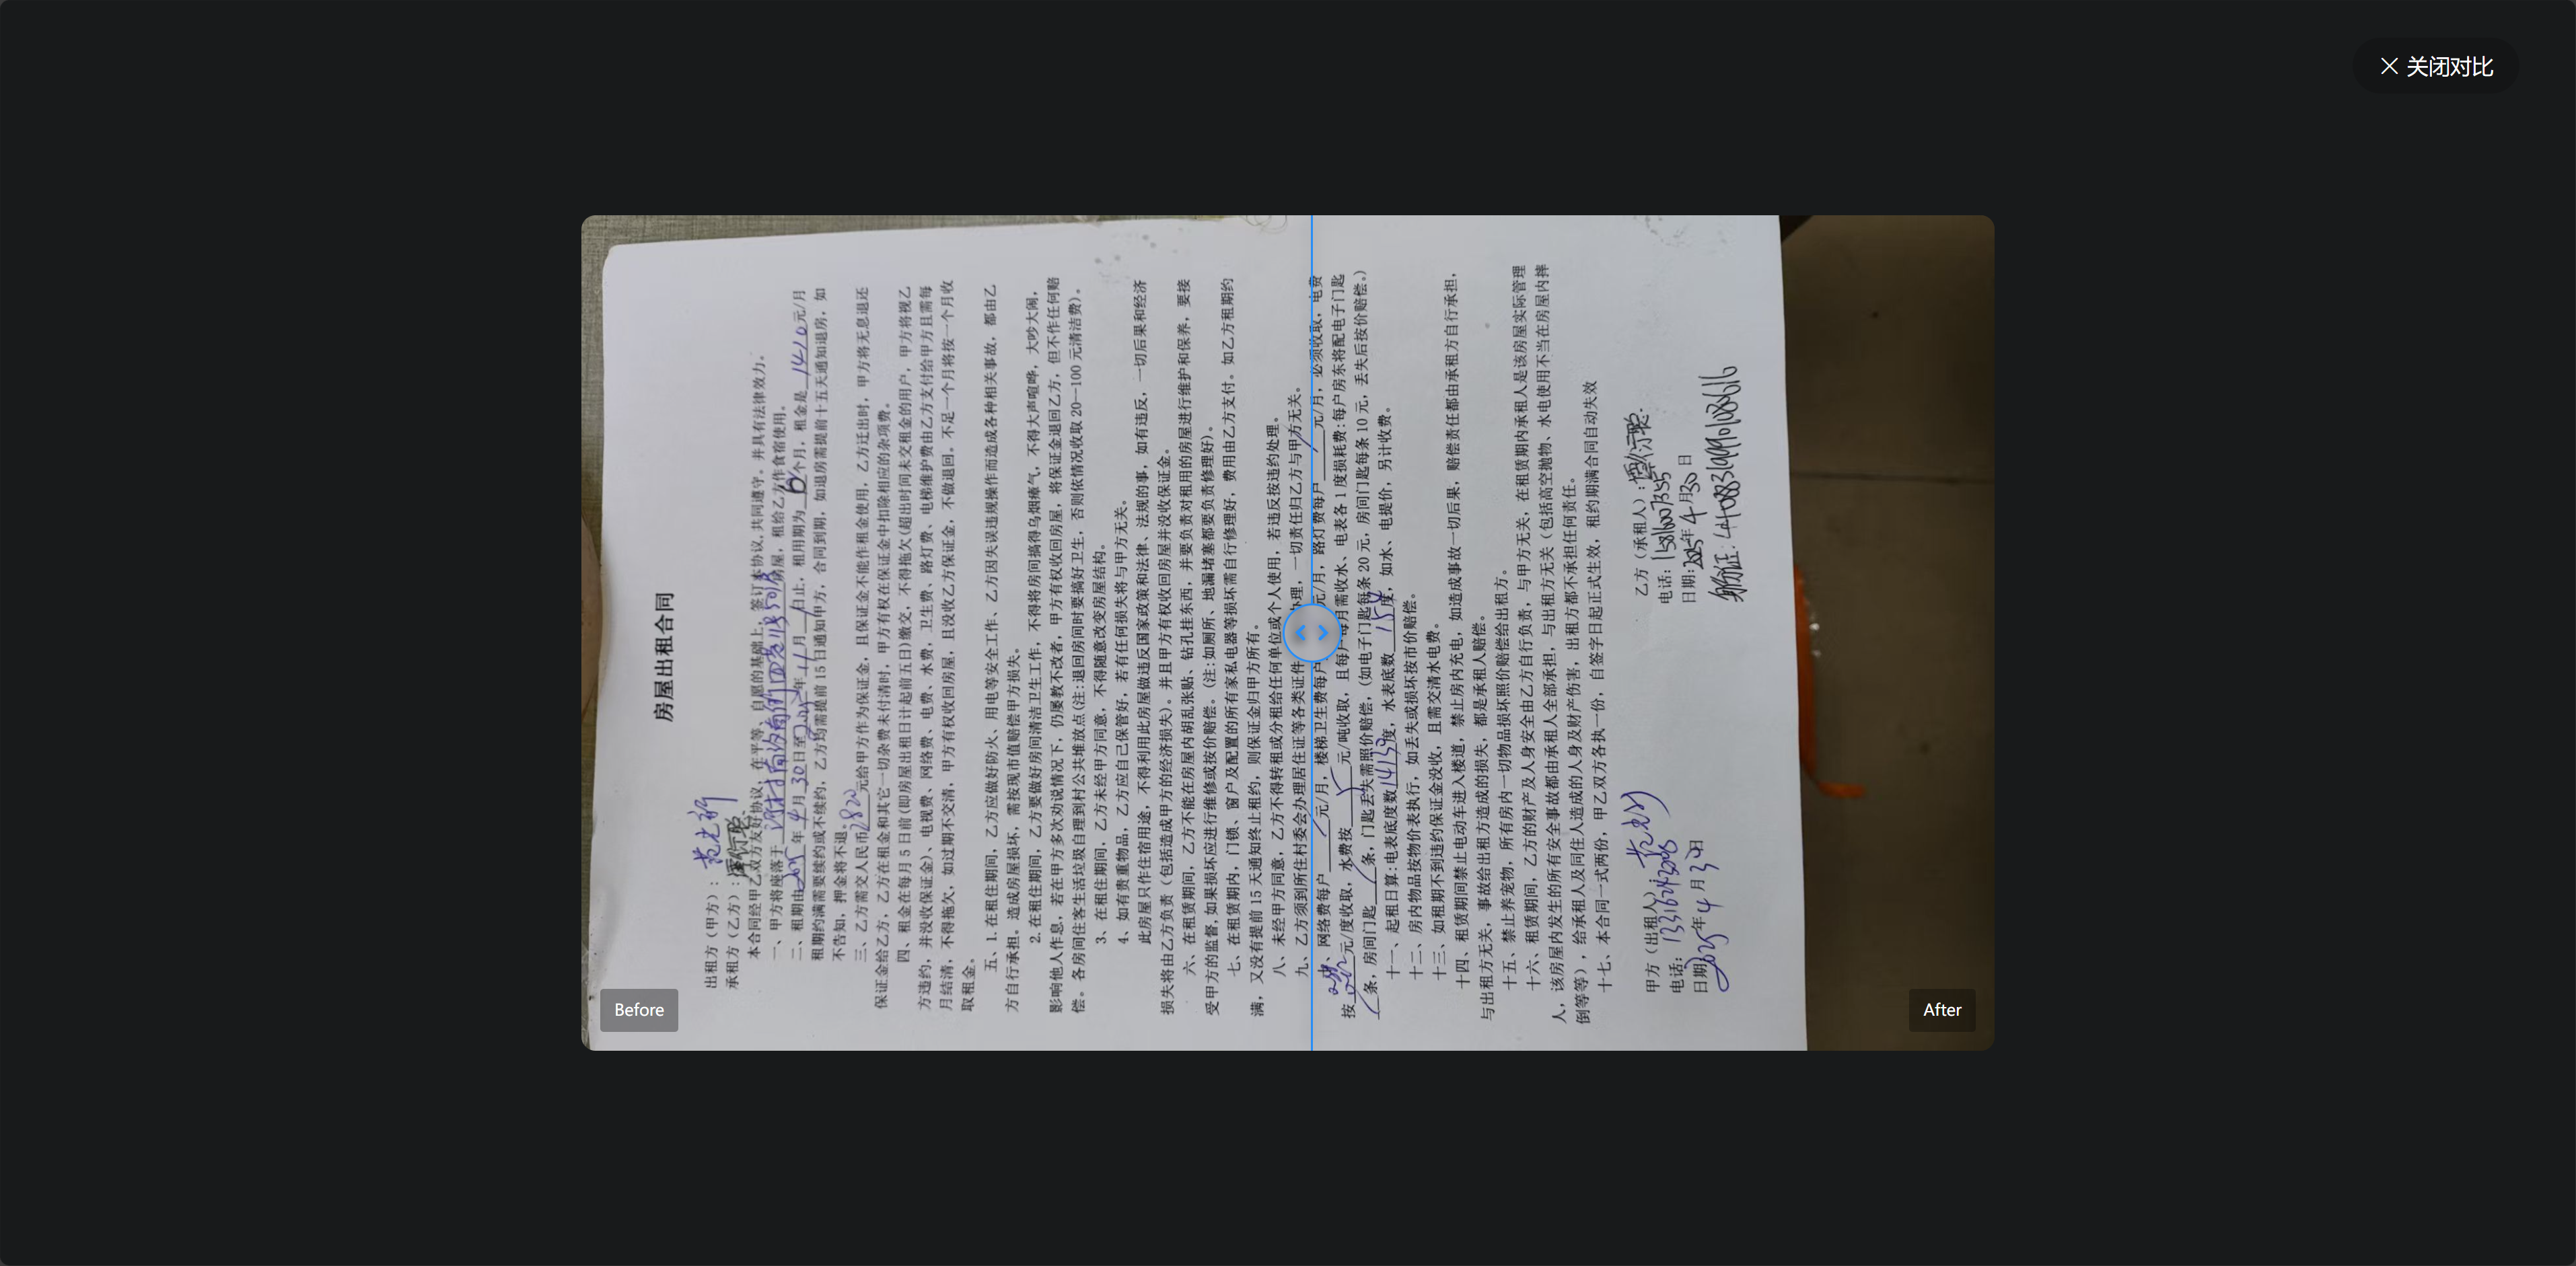 关闭对比
房屋出租合同
出租方（甲方）：
承租方（乙方）：
本合同经甲乙双方友好协议，在平等、自愿的基础上，签订本协议，共同遵守。并具有法律效力。
一、甲方将座落于 房屋，租给乙方作食宿使用。
二、租期由2025年4月30日至2025年11月 日止，租用期为 个月，租金是1410元/月
租期约满需要续约或不续约，乙方均需提前15日通知甲方，合同到期，如退房需提前十五天通知退房，如
不告知，押金将不退。
三、乙方需交人民币2820元给甲方作为保证金，且保证金不能作租金使用，乙方迁出时，甲方将无息退还
保证金给乙方，乙方在租金和其它一切杂费未付清时，甲方有权在保证金中扣除相应的杂项费。
四、租金在每月5日前(即房屋出租日计起前五日)缴交，不得拖欠(超出时间未交租金的用户，甲方将视乙
方违约，并没收保证金)、电视费、网络费、电费、水费，卫生费、路灯费、电梯维护费由乙方支付给甲方且需每
月结清，不得拖欠，如过期不交清，甲方有权收回房屋，且没收乙方保证金，不做退回。不足一个月将按一个月收
取租金。
五、1.在租住期间，乙方应做好防火、用电等安全工作、乙方因失误违规操作而造成各种相关事故，都由乙
方自行承担。造成房屋损坏，需按现市值赔偿甲方损失。
2.在租住期间，乙方要做好房间清洁卫生工作，不得将房间搞得乌烟瘴气，不得大声喧哗，大吵大闹，
影响他人作息，若在甲方多次劝说情况下，仍屡教不改者，甲方有权收回房屋，将保证金退回乙方，但不作任何赔
偿。各房间住客生活垃圾自理到村公共堆放点(注:退回房间时要搞好卫生，否则依情况收取20—100元清洁费)。
3、在租住期间，乙方未经甲方同意，不得随意改变房屋结构。
4、如有贵重物品，乙方应自己保管好，若有任何损失将与甲方无关。
此房屋只作住宿用途，不得利用此房屋做违反国家政策和法律、法规的事，如有违反，一切后果和经济
损失将由乙方负责（包括造成甲方的经济损失)。并且甲方有权收回房屋并没收保证金。
六、在租赁期间，乙方不能在房屋内胡乱张贴、钻孔挂东西，并要负责对租用的房屋进行维护和保养，要接
受甲方的监督,如果损坏应进行维修或按价赔偿。(注:如厕所、地漏堵塞都要负责修理好)。
七、在租赁期内，门锁、窗户及配置的所有家私电器等损坏需自行修理好，费用由乙方支付。如乙方租期约
满，又没有提前15天通知终止租约，则保证金归甲方所有。
八、未经甲方同意，乙方不得转租或分租给任何单位或个人使用，若违反按违约处理。
九、乙方须到所住村委会办理居住证等各类证件 办理，一切责任归乙方与甲方无关。
十、网络费每户 元/月，楼梯卫生费每户 元/月，路灯费每户 元/月，必须收取，电费
按 元/度收取，水费按 元/吨收取，且每户每月需收水、电表各1度损耗费:每户房东将配电子门匙
条，房间门匙 条，门匙丢失需照价赔偿，(如电子门匙每条20元，房间门匙每条10元，丢失后按价赔偿。)
十一、起租日算:电表底度数 度，水表底数 度，如水、电提价，另计收费。
十二、房内物品按物价表执行，如丢失或损坏按市价赔偿。
十三、如租期不到违约保证金没收，且需交清水电费。
十四、租赁期间禁止电动车进入楼道，禁止房内充电，如造成事故一切后果，赔偿责任都由承租方自行承担，
与出租方无关，事故给出租方造成的损失，都是承租人赔偿。
十五、禁止养宠物，所有房内一切物品损坏照价赔偿给出租方。
十六、租赁期间，乙方的财产及人身安全由乙方自行负责，与甲方无关，在租赁期内承租人是该房屋实际管理
人，该房屋内发生的所有安全事故都由承租人全部承担，与出租方无关（包括高空抛物、水电使用不当在房屋内摔
倒等等），给承租人及同住人造成的人身及财产伤害，出租方都不承担任何责任。
十七、本合同一式两份，甲乙双方各执一份，自签字日起正式生效，租约期满合同自动失效
甲方（出租人）：
电话：
日期 2025年4月30日
乙方（承租人）：
电话：
日期：2025年4月30日
身份证：
Before
After